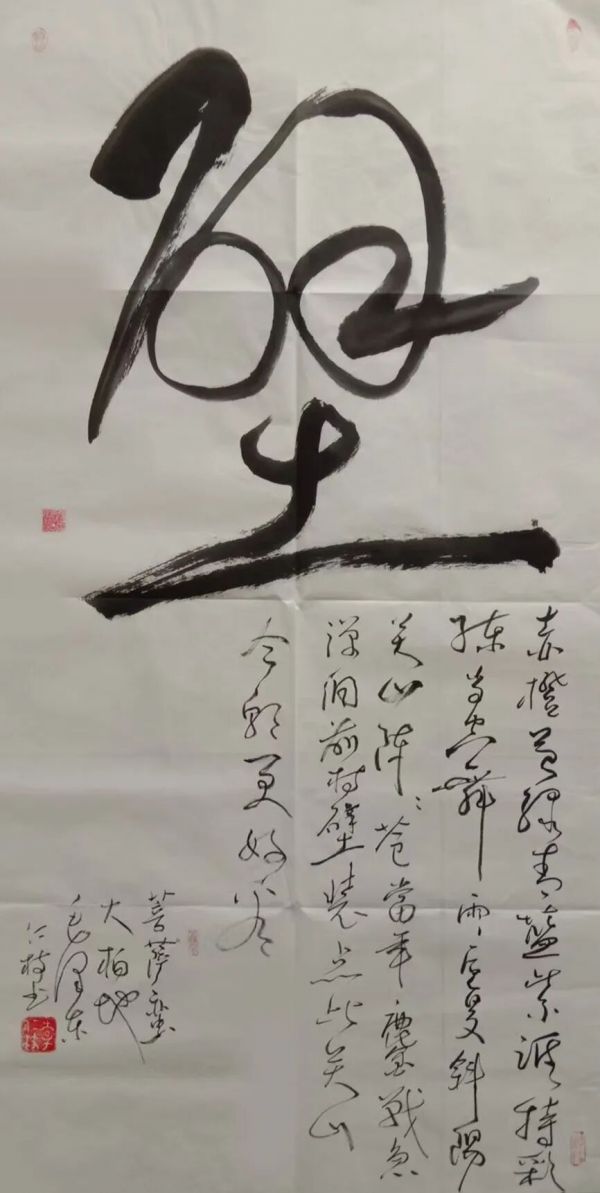 壁
赤橙黄绿青蓝紫谁持彩
练当空舞雨后复斜阳
关山阵々苍當年鏖战急
弹洞前村壁装点此关山
今朝更好看
菩萨蛮
大柏地
毛泽东
仁枝书